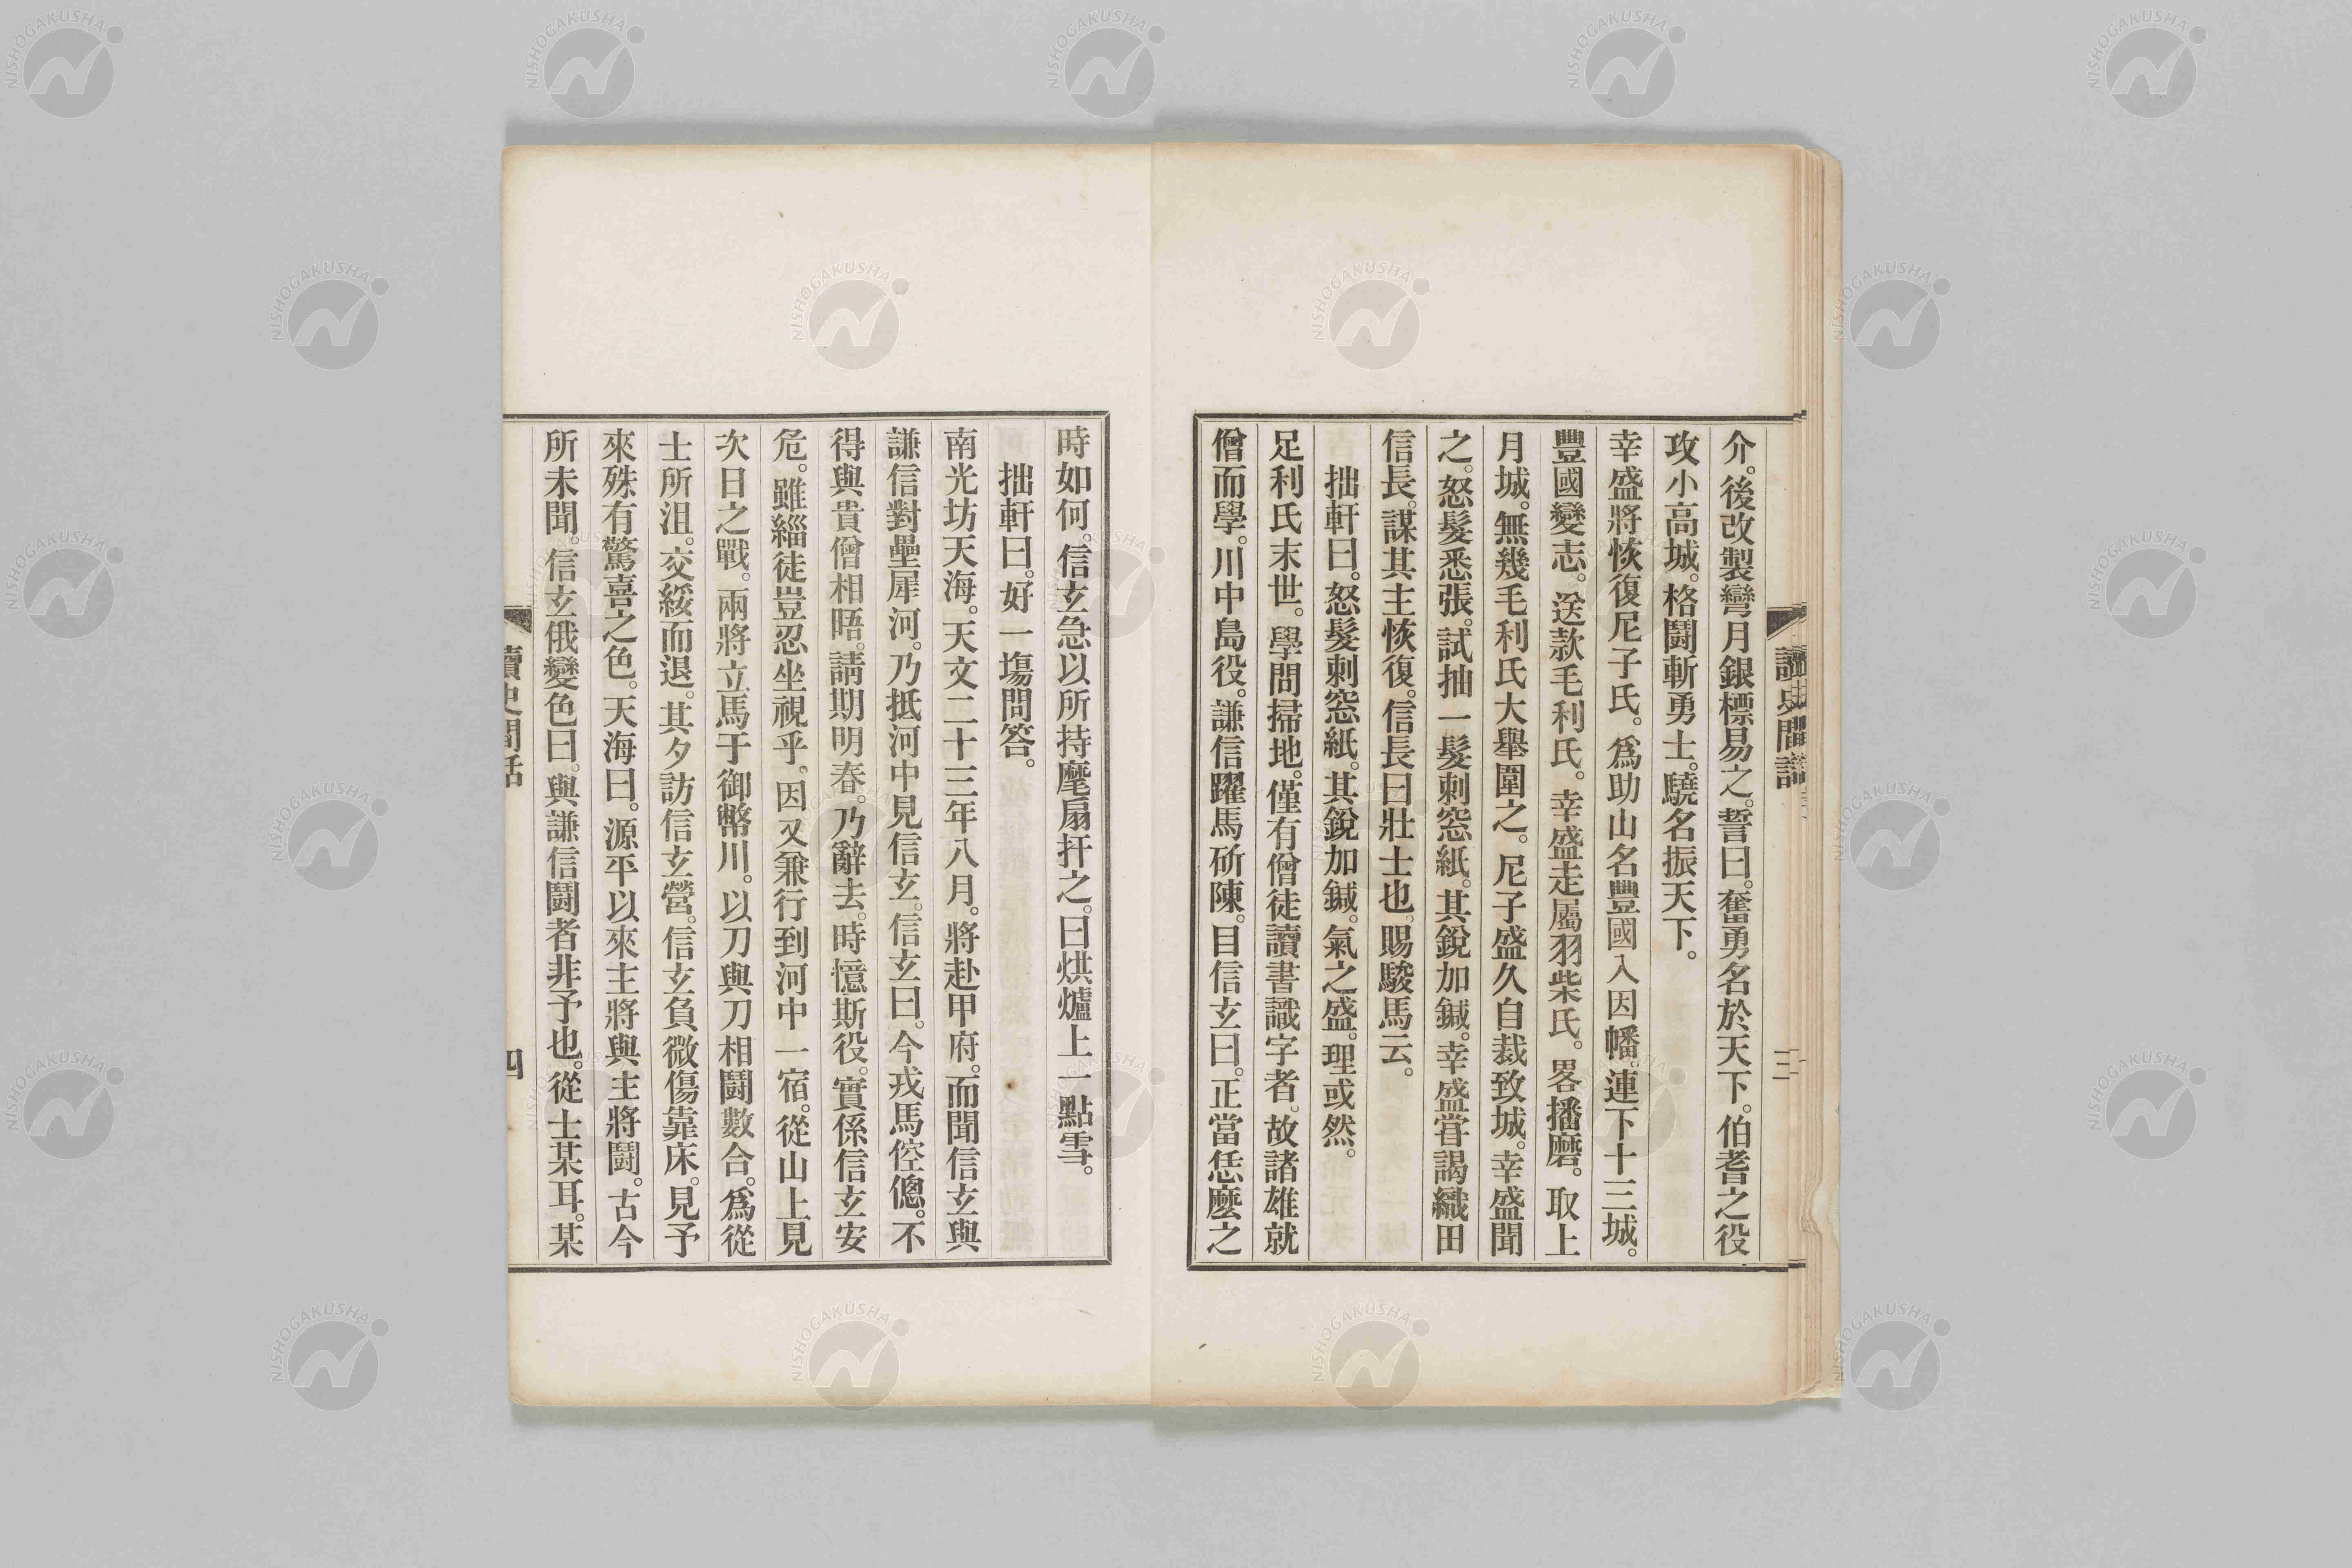 介。後改製彎月銀標易之。誓曰。奮勇名於天下。伯耆之役
攻小高城。格鬪斬勇士。驍名振天下。
幸盛將恢復尼子氏。爲助山名豐國入因幡。連下十三城。
豐國變志。送款毛利氏。幸盛走屬羽柴氏。畧播磨。取上
月城。無幾毛利氏大擧圍之。尼子盛久自裁致城。幸盛聞
之。怒髮悉張。試抽一髮刺窓紙。其銳加鍼。幸盛甞謁織田
信長。謀其主恢復。信長曰壯士也。賜駿馬云。
拙軒曰。怒髮刺窓紙。其銳加鍼。氣之盛。理或然。
足利氏末世。學問掃地。僅有僧徒讀書識字者。故諸雄就
僧而學。川中島役。謙信躍馬斫陳。目信玄曰。正當恁麼之
三
時如何。信玄急以所持麾扇扞之。曰烘爐上一點雪。
拙軒曰。好一塲問答。
南光坊天海。天文二十三年八月。將赴甲府。而聞信玄與
謙信對壘犀河。乃抵河中見信玄。信玄曰。今戎馬倥傯。不
得與貴僧相晤。請期明春。乃辭去。時憶斯役。實係信玄安
危。雖緇徒豈忍坐視乎。因又兼行到河中一宿。從山上見
次日之戰。兩將立馬于御幣川。以刀與刀相鬪數合。爲從
士所沮。交綏而退。其夕訪信玄營。信玄負微傷靠床。見予
來殊有驚喜之色。天海曰。源平以來主將與主將鬪。古今
所未聞。信玄俄變色曰。與謙信鬪者非予也。從士某耳。某
讀史閒話
四
NISHOGAKUSHA